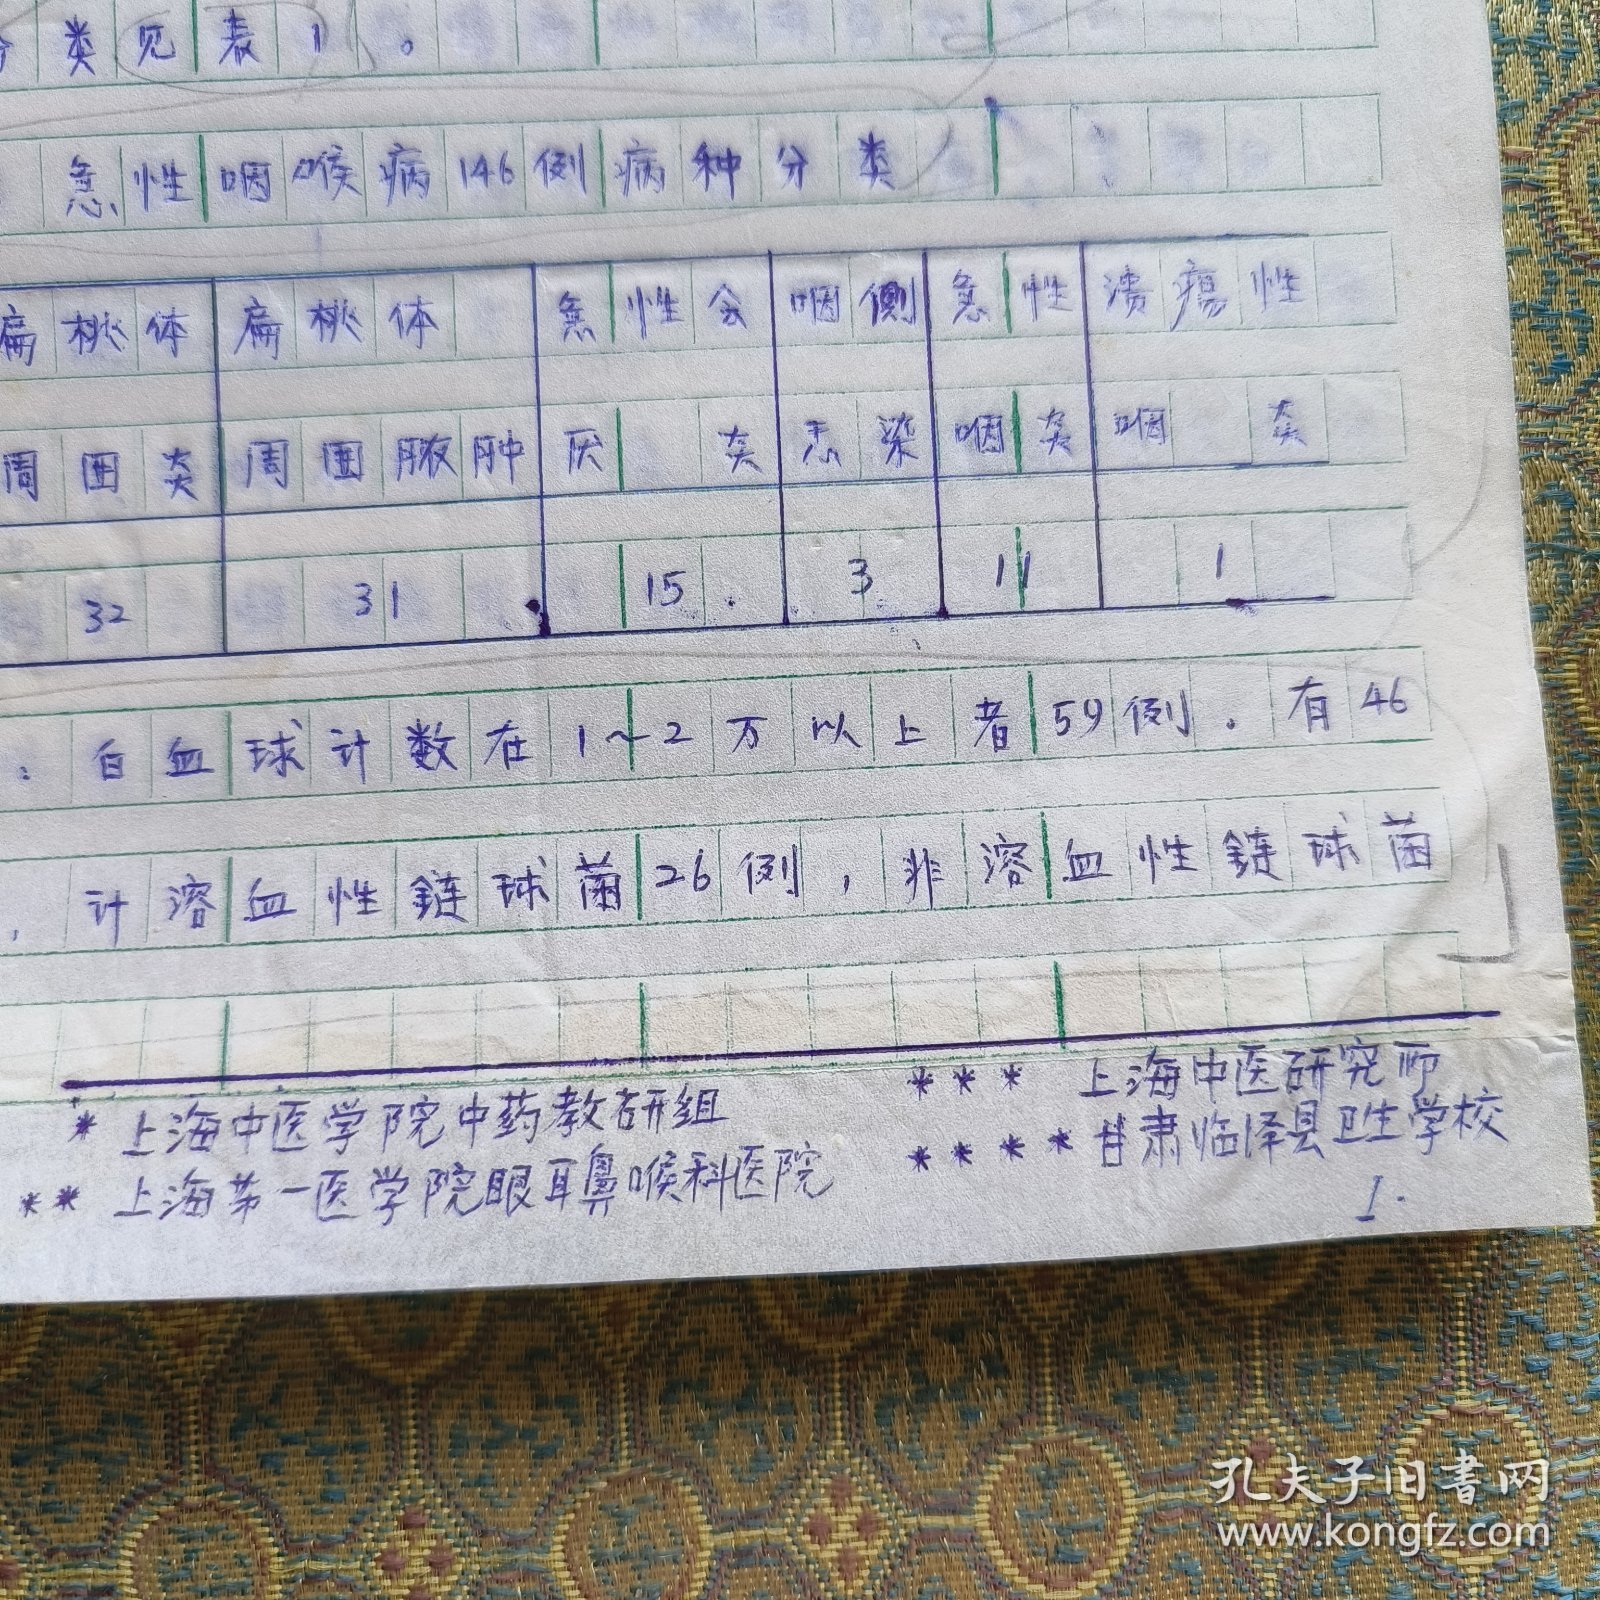 分类见表1。
急性咽喉病146例病种分类
扁桃体 扁桃体 急性会 咽侧 急性 溃疡性
周围炎 周围脓肿 厌炎 感染 咽炎 咽炎
32 31 15. 3 11 1
：白血球计数在1~2万以上者59例．有46
，计溶血性鏈球菌26例，非溶血性鏈球菌
* 上海中医学院中药教研组
*** 上海中医研究所
** 上海第一医学院眼耳鼻喉科医院
**** 甘肃临泽县卫生学校
1.
孔夫子旧书网
www.kongfz.com